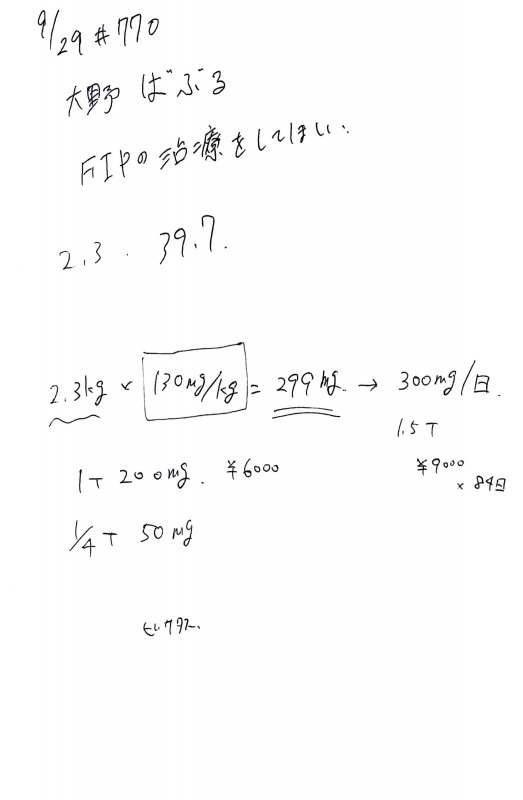 9/29 #770
大野 ばぶる
FIPの治療をしてほしい.
2.3 . 39.7.
2.3kg × 130mg/kg = 299mg. → 300mg/日.
1.5T
1T 200mg. ¥6000
¥9000
× 84日
1/4T 50mg